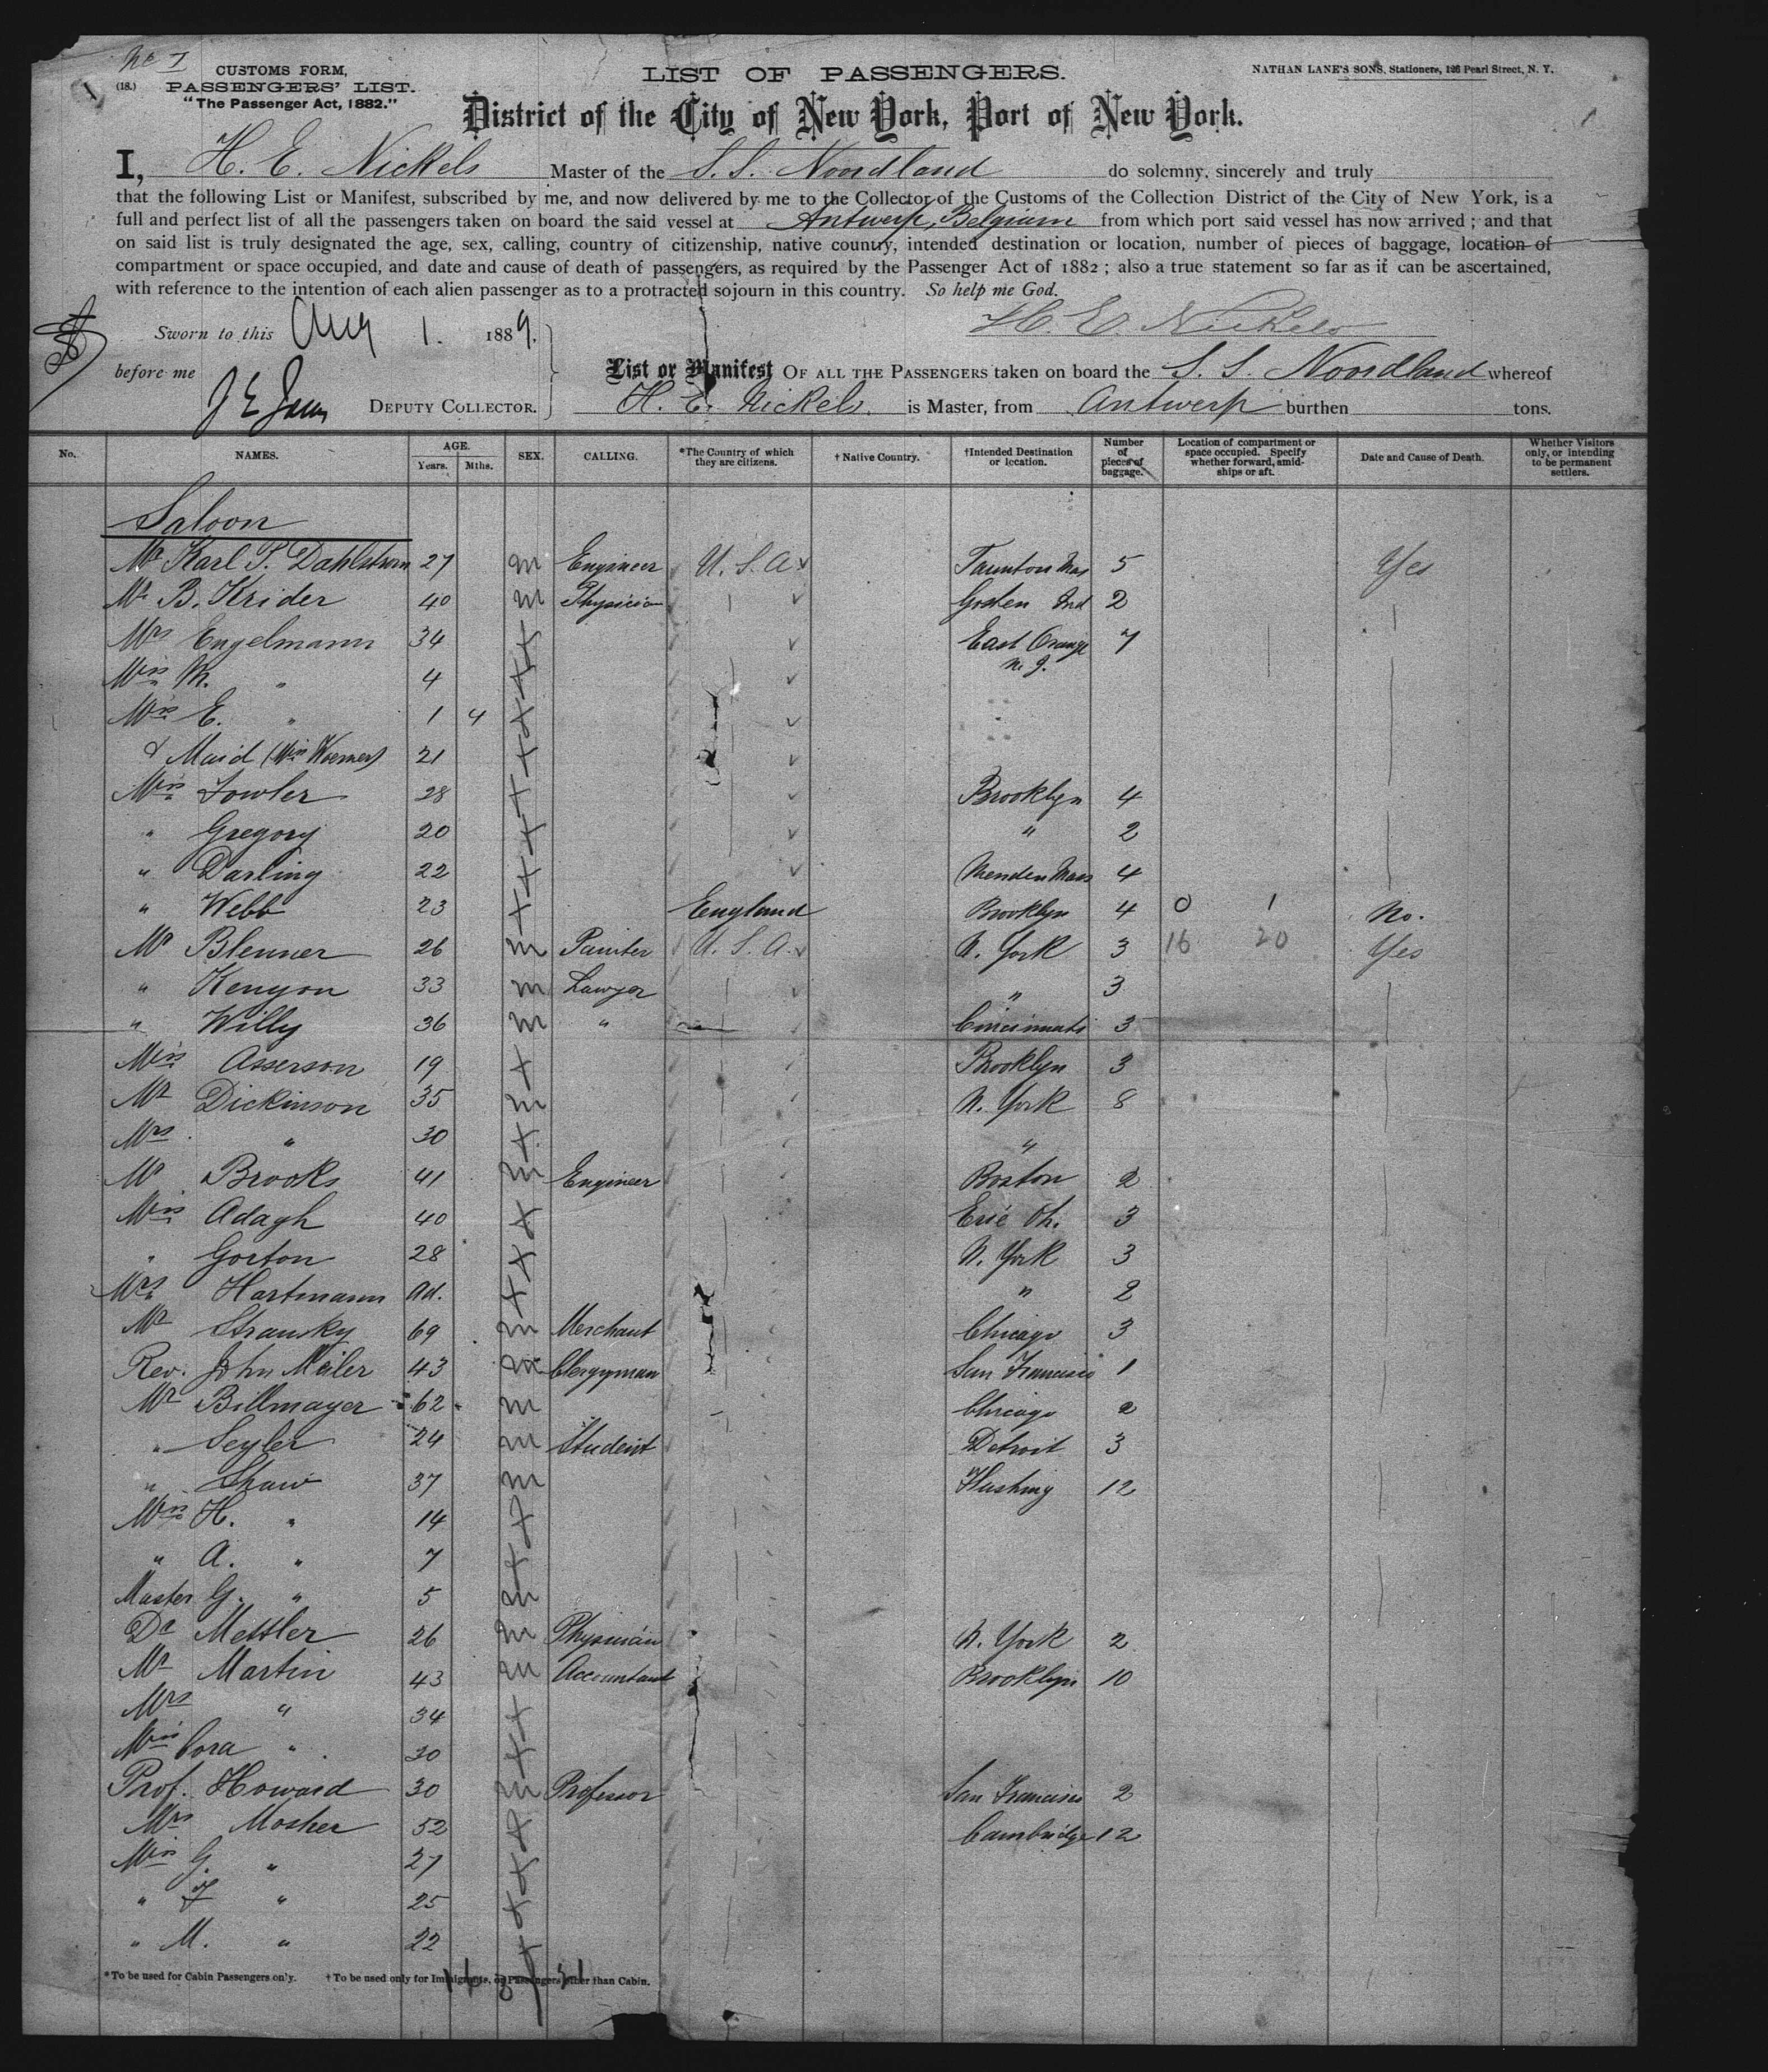 No 1
1
(18.)
CUSTOMS FORM,
PASSENGERS' LIST.
"The Passenger Act, 1882."
LIST OF PASSENGERS.
NATHAN LANE'S SONS, Stationers, 126 Pearl Street, N. Y.
District of the City of New York, Port of New York.
I, H. E. Nickels Master of the S. S. Noordland do solemny, sincerely and truly
that the following List or Manifest, subscribed by me, and now delivered by me to the Collector of the Customs of the Collection District of the City of New York, is a
full and perfect list of all the passengers taken on board the said vessel at Antwerp, Belgium from which port said vessel has now arrived ; and that
on said list is truly designated the age, sex, calling, country of citizenship, native country, intended destination or location, number of pieces of baggage, location of
compartment or space occupied, and date and cause of death of passengers, as required by the Passenger Act of 1882 ; also a true statement so far as it can be ascertained,
with reference to the intention of each alien passenger as to a protracted sojourn in this country. So help me God.
H. E. Nickels
Sworn to this Aug 1. 1889.
before me
DEPUTY COLLECTOR.
List or Manifest OF ALL THE PASSENGERS taken on board the S. S. Noordland whereof
H. E. Nickels is Master, from Antwerp burthen tons.
No. NAMES. AGE. Years. Mths. SEX. CALLING. *The Country of which they are citizens. † Native Country. †Intended Destination or location. Number of pieces of baggage. Location of compartment or space occupied. Specify whether forward, amidships or aft. Date and Cause of Death. Whether Visitors only, or intending to be permanent settlers.
Saloon
Mr Karl P. Dahlstrom 27 m Engineer U. S. A Taunton Mas 5 Yes
Mr B. Krider 40 m Physician Goshen Ind 2
Mrs Engelmann 34 x East Orange N. J. 7
Miss M. " 4 x
Miss E. " 1 4 x
& Maid (Miss Woerner) 21 x
Miss Fowler 28 x Brooklyn 4
" Gregory 20 x " 2
" Darling 22 x Menden Mass 4
" Webb 23 x England Brooklyn 4 0 1 No.
Mr Blenner 26 m Painter U. S. A. N. York 3 16 20 Yes
" Kenyon 33 m Lawyer " 3
" Willy 36 m " Cincinnati 3
Miss Asserson 19 x Brooklyn 3
Mr Dickinson 35 m N. York 8
Mrs " 30 x "
Mr Brooks 41 m Engineer Boston 2
Miss Adagh 40 x Erie Oh. 3
" Gorton 28 x N. York 3
Mrs Hartmann Ad. x " 2
Mr Stransky 69 m Merchant Chicago 3
Rev. John Meiler 43 m Clergyman San Francisco 1
Mr Billmayer 62 m Chicago 2
" Seyler 24 m Student Detroit 3
" Shaw 37 m Flushing 12
Miss H. " 14 x
" A. " 7 x
Master G. " 5 m
Dr Mettler 26 m Physician N. York 2
Mr Martin 43 m Accountant Brooklyn 10
Mrs " 34 x
Miss Cora " 30 x
Prof. Howard 30 m Professor San Francisco 2
Mrs Mosher 52 x Cambridge 12
Miss G. " 27 x
" F " 25 x
" M. " 22 x
*To be used for Cabin Passengers only. † To be used only for Immigrants, or Passengers other than Cabin.